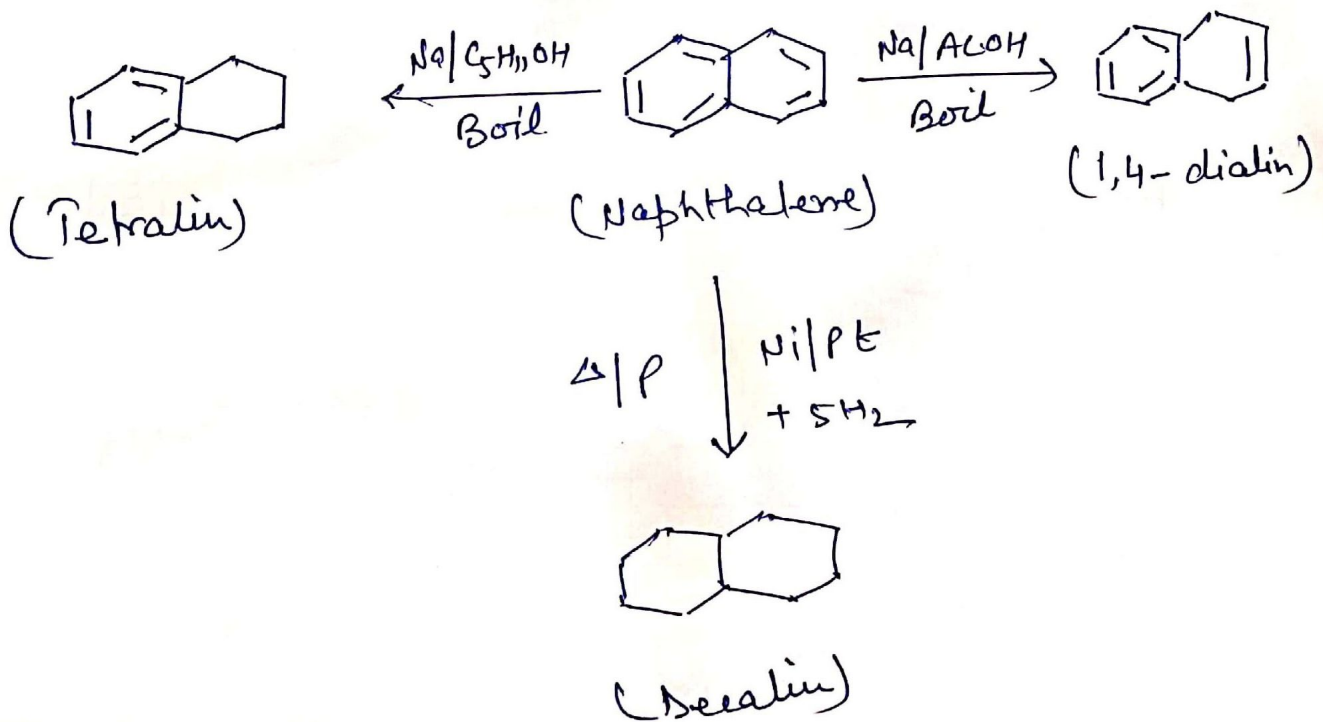 Na/C5H11OH
Boil
Na/ACOH
Boil
(Tetralin)
(Naphthalene)
(1,4-dialin)
Δ/P
Ni/Pt
+ 5H2
(Decalin)